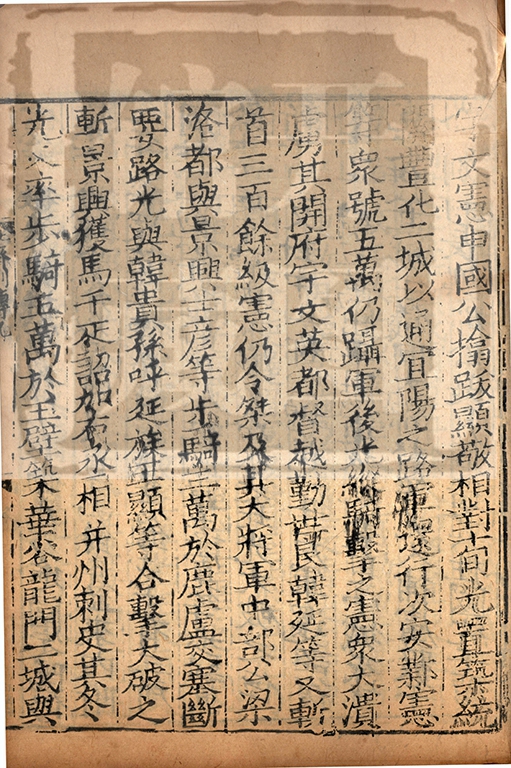 宇文憲申國公搚跋顯敬相對十旬光置築統
關豐化二城以通宜陽之路軍還行次安鄴憲
等衆號五萬仍躡軍後光縱騎擊之憲衆大潰
虜其開府宇文英都督越勤世良韓延等又斬
首三百餘級憲仍令桀及其大將軍中部公梁
洛都與景興士彦等步騎三萬於鹿盧交塞斷
要路光與韓貴孫呼延族王顯等合擊大破之
斬景興獲馬千疋詔加右丞相并州刺史其冬
光又率步騎五萬於玉壁築華谷龍門二城與